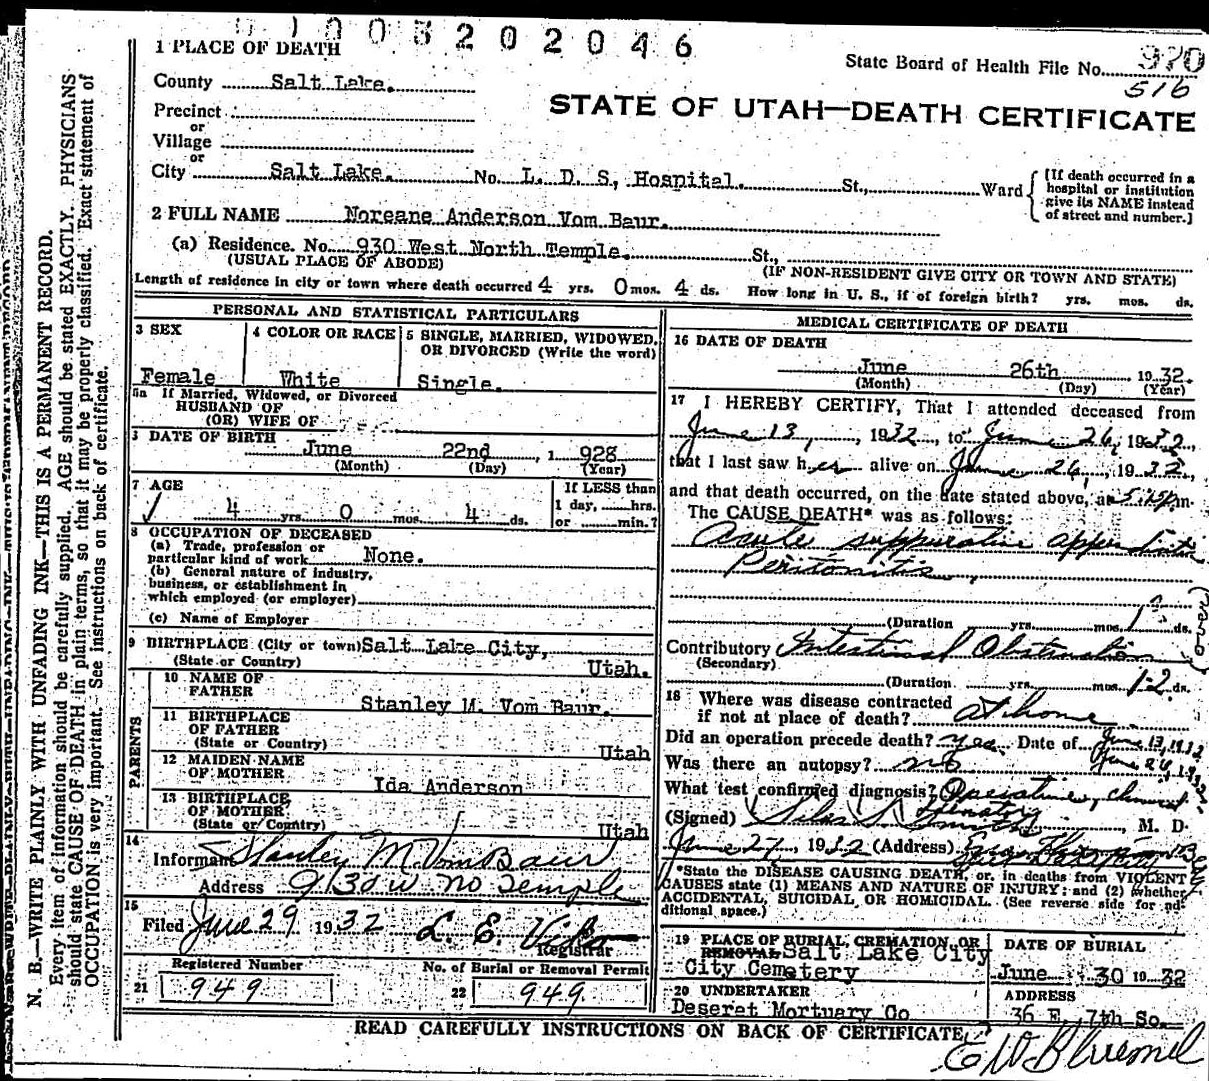 003202046
1 PLACE OF DEATH
State Board of Health File No. 970
516
County Salt Lake.
STATE OF UTAH—DEATH CERTIFICATE
Precinct
or
Village
or
City Salt Lake. No. L. D. S, Hospital. St., Ward
[If death occurred in a hospital or institution give its NAME instead of street and number.]
2 FULL NAME Noreane Anderson Vom Baur.
(a) Residence. No. 930 West North Temple. St.,
(USUAL PLACE OF ABODE) (IF NON-RESIDENT GIVE CITY OR TOWN AND STATE)
Length of residence in city or town where death occurred 4 yrs. 0 mos. 4 ds. How long in U. S., if of foreign birth? yrs. mos. ds.
PERSONAL AND STATISTICAL PARTICULARS
3 SEX
Female
4 COLOR OR RACE
White
5 SINGLE, MARRIED, WIDOWED, OR DIVORCED (Write the word)
Single.
5a If Married, Widowed, or Divorced
HUSBAND OF
(OR) WIFE OF
DATE OF BIRTH
June 22nd, 1 928
(Month) (Day) (Year)
7 AGE
4 yrs. 0 mos. 4 ds.
If LESS than
1 day, hrs.
or min.?
8 OCCUPATION OF DECEASED
(a) Trade, profession or
particular kind of work None.
(b) General nature of industry,
business, or establishment in
which employed (or employer)
(c) Name of Employer
9 BIRTHPLACE (City or town) Salt Lake City,
(State or Country) Utah.
PARENTS
10 NAME OF
FATHER
Stanley M. Vom Baur.
11 BIRTHPLACE
OF FATHER
(State or Country) Utah
12 MAIDEN NAME
OF MOTHER
Ida Anderson
13 BIRTHPLACE
OF MOTHER
(State or Country) Utah
14
Informant Stanley M. Vom Baur
Address 930 W. No Temple
15
Filed June 29 1932 L. E.
Registrar
Registered Number
21 949
No. of Burial or Removal Permit
22 949
MEDICAL CERTIFICATE OF DEATH
16 DATE OF DEATH
June 26th 1932.
(Month) (Day) (Year)
17 I HEREBY CERTIFY, That I attended deceased from
June 13, 1932, to June 26, 1932,
that I last saw her alive on June 26, 1932,
and that death occurred, on the date stated above, at m.
The CAUSE DEATH* was as follows:
Acute suppurative appendicitis
Peritonitis
(Duration yrs. mos. ds.
Contributory Intestinal Obstruction
(Secondary)
(Duration yrs. mos. 12 ds.
18 Where was disease contracted
if not at place of death? at home
Did an operation precede death? yes. Date of June 13, 1932
June 26, 1932
Was there an autopsy? no
What test confirmed diagnosis? Operative, clinical
(Signed) Silas S. Smith, M. D.
June 27, 1932 (Address)
*State the DISEASE CAUSING DEATH, or, in deaths from VIOLENT
CAUSES state (1) MEANS AND NATURE OF INJURY; and (2) whether
ACCIDENTAL, SUICIDAL, OR HOMICIDAL. (See reverse side for ad-
ditional space.)
19 PLACE OF BURIAL, CREMATION, OR
REMOVAL Salt Lake City
City Cemetery
DATE OF BURIAL
June 30 1932
20 UNDERTAKER
Deseret Mortuary Co
ADDRESS
36 E. 7th So.
READ CAREFULLY INSTRUCTIONS ON BACK OF CERTIFICATE.
E W Bluemel
N. B.—WRITE PLAINLY WITH UNFADING INK—THIS IS A PERMANENT RECORD.
Every item of information should be carefully supplied. AGE should be stated EXACTLY. PHYSICIANS
should state CAUSE OF DEATH in plain terms, so that it may be properly classified. Exact statement of
OCCUPATION is very important. See instructions on back of certificate.